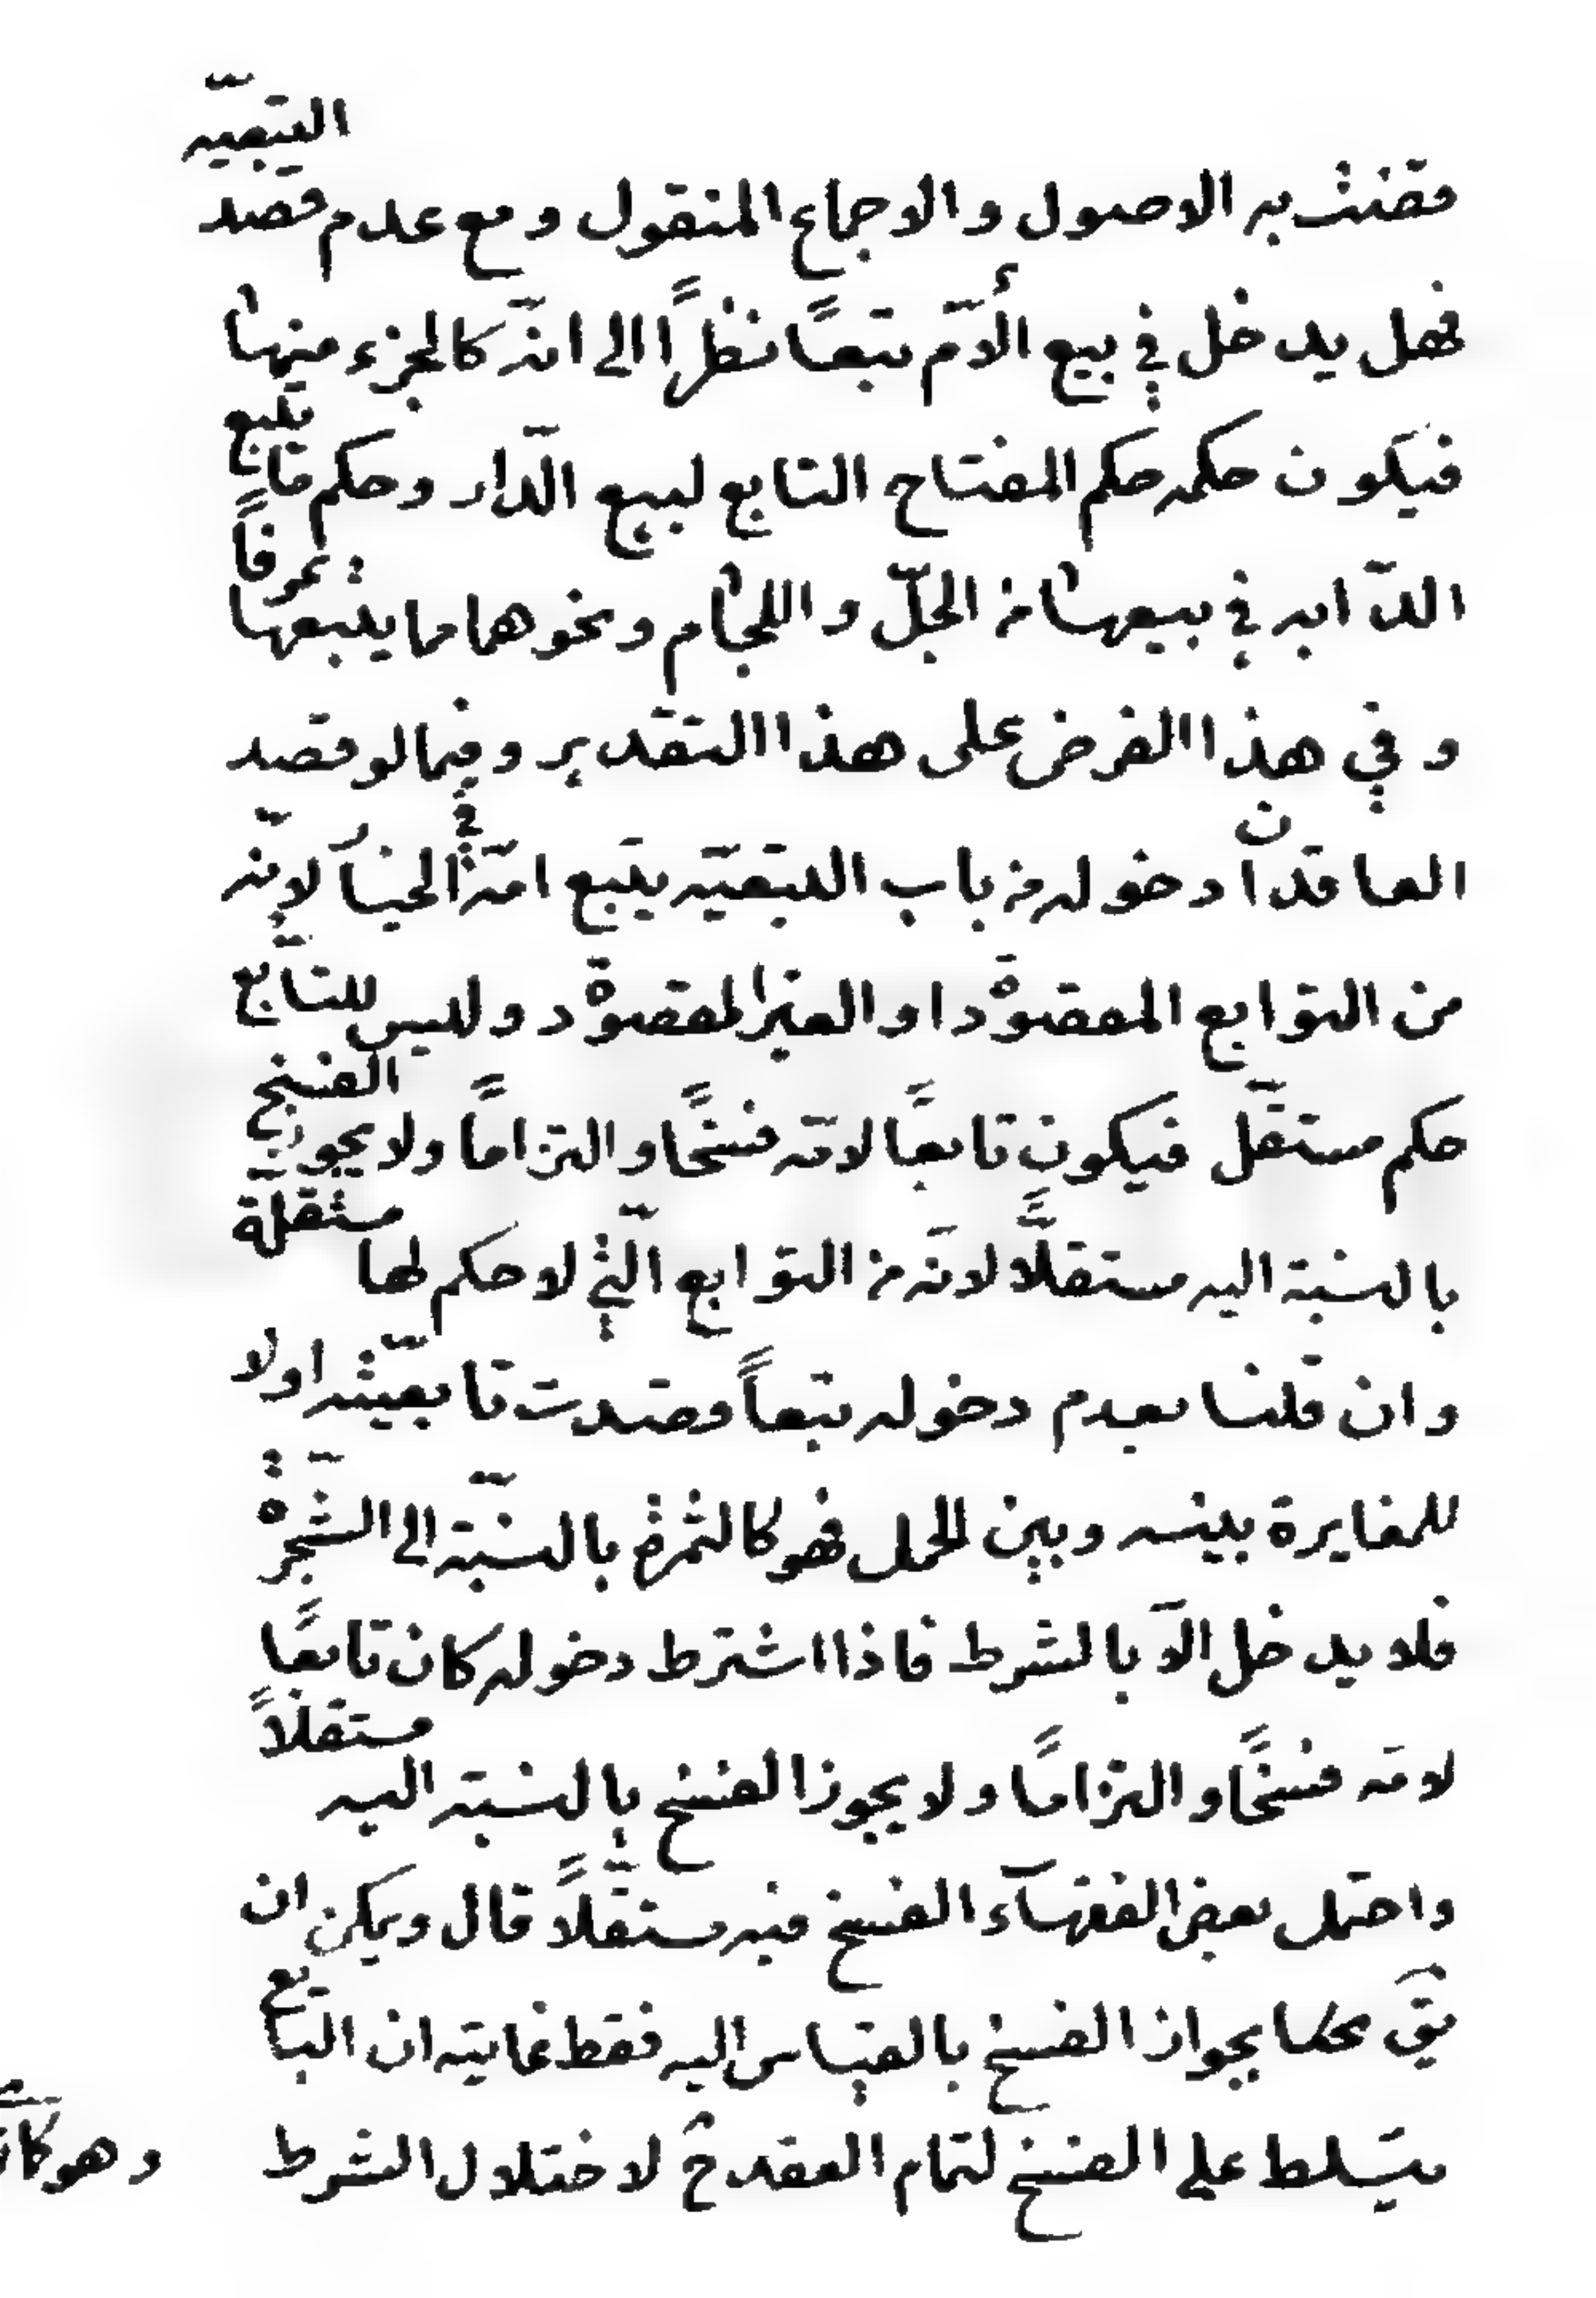 قضت به الاصول والاجماع المنقول ومع عدم قصد التبعيّة
فهل يدخل في بيع الأمّ تبعًا نظرًا الى انّه كالجزء منها
فيكون حكمه حكم المفتاح التابع لبيع الدّار وحكم ما يتبع
الدّابه في بيعها من الجلّ واللجام ونحوهما مما يتبعها عرفًا
وفي هذا الفرض على هذا التقدير وفيما لو قصد
العاقدان دخوله من باب التبعيّه يتبع امّه في الخيار لانّه
من التوابع المقصودة او الغير المقصودة وليس للتابع
حكم مستقلّ فيكون تابعًا لامّه فسخًا والتزامًا ولا يجوز الفسخ
بالنسبة اليه مستقلًّا لانّه من التوابع الّتي لا حكم لها مستقلّة
وان قلنا بعدم دخوله تبعاً وقصدت تابعيّته اولا
للمغايرة بينه وبين الحمل فهو كالثمرة بالنّسبة الى الشّجرة
فلا يدخل الّا بالشرط فاذا اشترط دخوله كان تابعًا
لامّه فسخًا والتزامًا ولا يجوز الفسخ بالنسبة اليه مستقلًا
واحتمل بعض الفقهآء الفسخ فيه مستقلًّا قال ويمكن ان
يقَ محكما بجواز الفسخ بالقياس اليه فقط غايته ان البايع
يتسلط على الفسخ لتمام العقد ح لاختلال الشرط
وهو كان